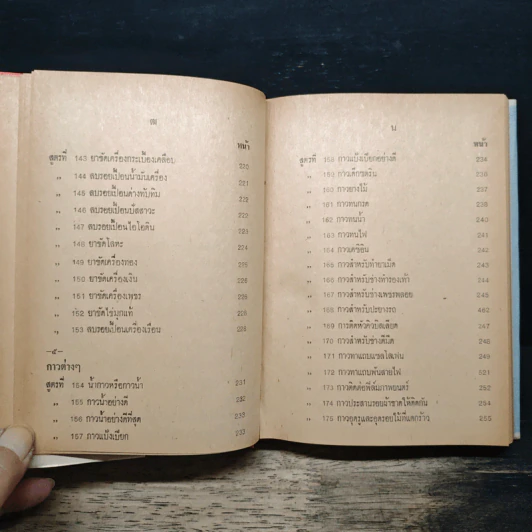 ฒ
หน้า
สูตรที่ 143 ยาขัดเครื่องกระเบื้องเคลือบ 220
„ 144 ลบรอยเปื้อนน้ำมันเครื่อง 221
„ 145 ลบรอยเปื้อนด่างทับทิม 222
„ 146 ลบรอยเปื้อนปัสสาวะ
„ 147 ลบรอยเปื้อนไอโอดีน 223
„ 148 ยาขัดโลหะ 224
„ 149 ยาขัดเครื่องทอง
„ 150 ยาขัดเครื่องเงิน 226
„ 151 ยาขัดเครื่องเพชร
„ 152 ยาขัดไข่มุกแท้
„ 153 ลบรอยเปื้อนเครื่องเรือน
กาวต่างๆ
สูตรที่ 154 น้ำกาวหรือกาวน้ำ 231
„ 155 กาวน้ำอย่างดี
„ 156 กาวน้ำอย่างดีที่สุด
„ 157 กาวแป้งเปียก 233
น
หน้า
สูตรที่ 158 กาวแป้งเปียกอย่างดี 234
„ 159 กาวเด็กซตริน
„ 160 กาวยางไม้
„ 161 กาวทนกรด
„ 162 กาวทนน้ำ 240
„ 163 กาวทนไฟ
„ 164 กาวเคซีอีน 242
„ 165 กาวสำหรับทำยาเม็ด 243
„ 166 กาวสำหรับช่างทำรองเท้า 244
„ 167 กาวสำหรับช่างเพชรพลอย
„ 168 กาวสำหรับปะยางรถ
„ 169 การติดหัวคิวบิลเลียด 247
„ 170 กาวสำหรับช่าง 249
„ 171 กาวทาแถบแซลโลเฟน 250
„ 172 กาวทาแถบพันสายไฟ 251
„ 173 กาวติดต่อฟิล์มภาพยนตร์
„ 174 กาวประสานรอยผ้าขาดให้ติดกัน 254
„ 175 กาวอุดรูและอุดรอยไม้ที่แตกร้าว 255